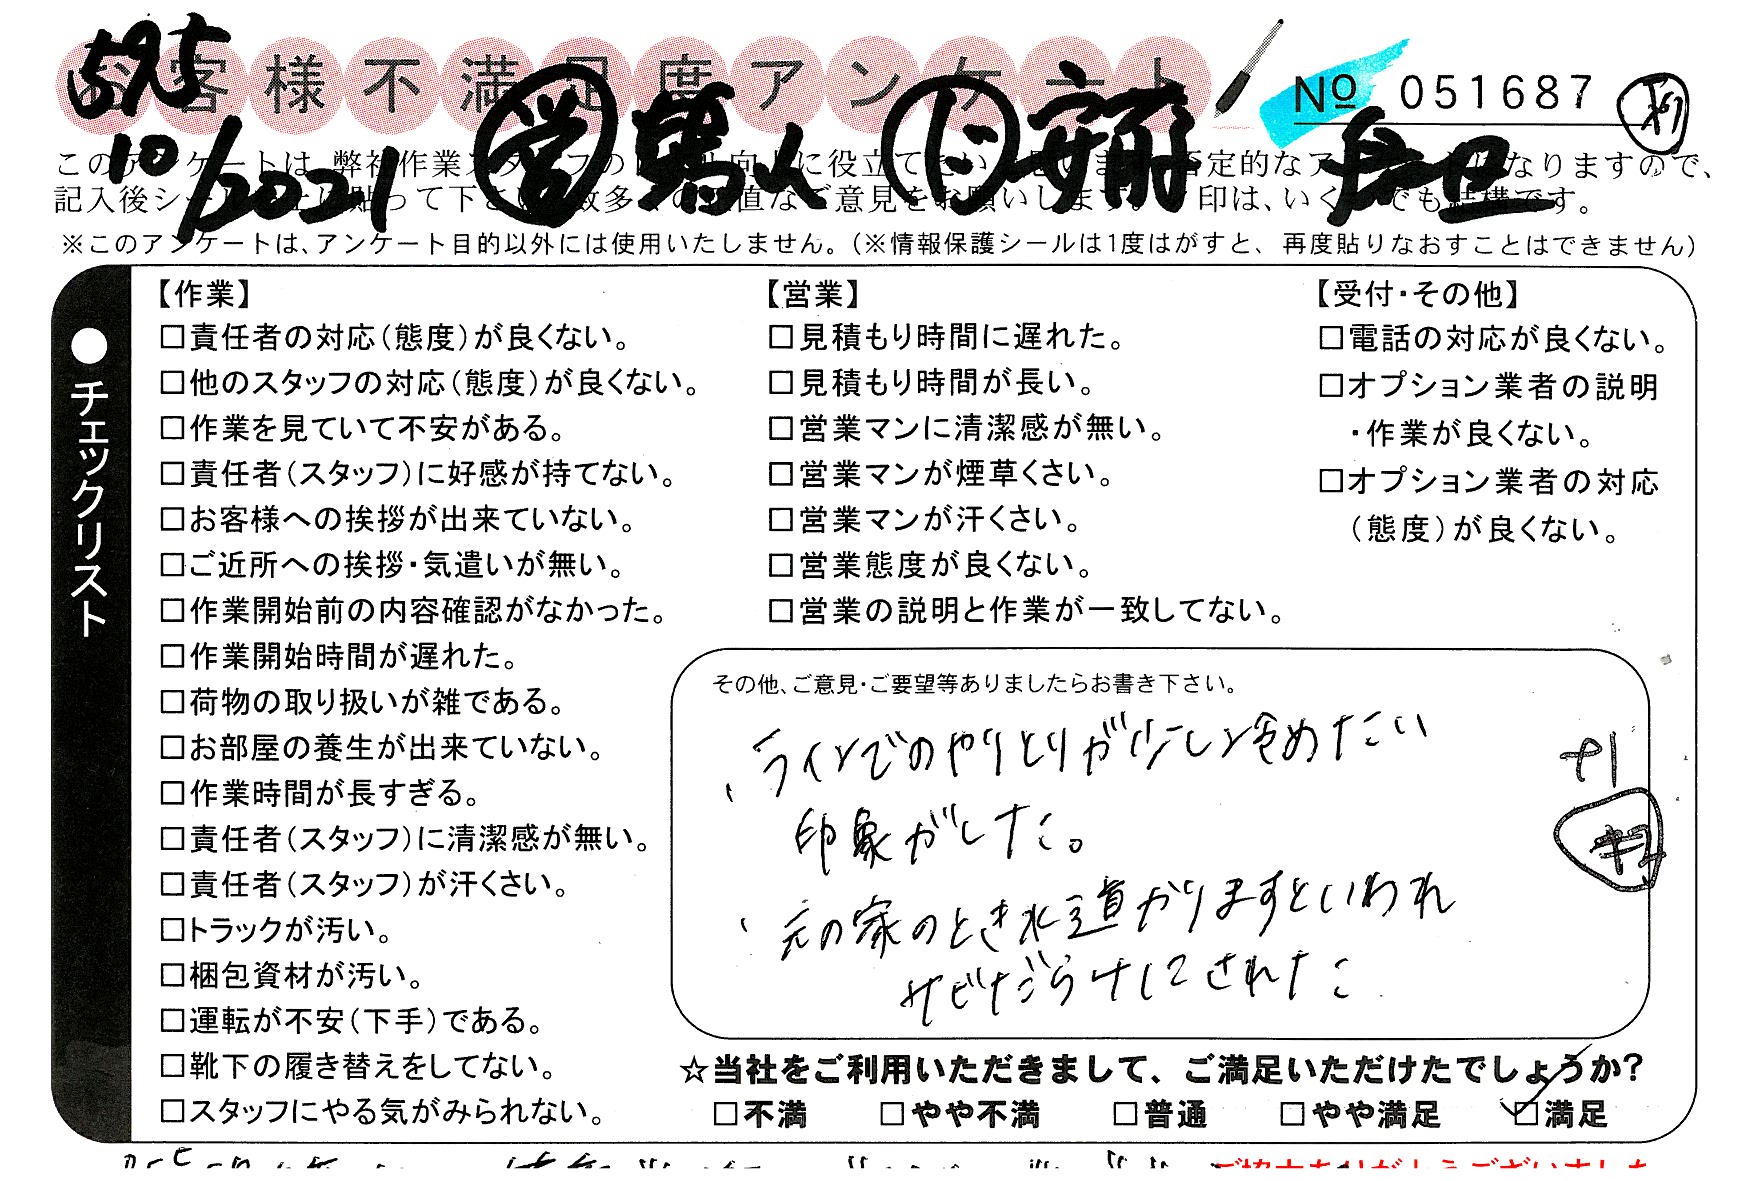 595
お客様不満足度アンケート
No 051687
10/2021
このアンケートは、弊社作業スタッフの
向上に役立て
否定的なア
なりますので、
記入後シー
貼って下さい
数多くの正直なご意見をお願いします。
印は、いくつでも結構です。
※このアンケートは、アンケート目的以外には使用いたしません。(※情報保護シールは1度はがすと、再度貼りなおすことはできません)
●チェックリスト
【作業】
□責任者の対応(態度)が良くない。
□他のスタッフの対応(態度)が良くない。
□作業を見ていて不安がある。
□責任者(スタッフ)に好感が持てない。
□お客様への挨拶が出来ていない。
□ご近所への挨拶・気遣いが無い。
□作業開始前の内容確認がなかった。
□作業開始時間が遅れた。
□荷物の取り扱いが雑である。
□お部屋の養生が出来ていない。
□作業時間が長すぎる。
□責任者(スタッフ)に清潔感が無い。
□責任者(スタッフ)が汗くさい。
□トラックが汚い。
□梱包資材が汚い。
□運転が不安(下手)である。
□靴下の履き替えをしてない。
□スタッフにやる気がみられない。
【営業】
□見積もり時間に遅れた。
□見積もり時間が長い。
□営業マンに清潔感が無い。
□営業マンが煙草くさい。
□営業マンが汗くさい。
□営業態度が良くない。
□営業の説明と作業が一致してない。
【受付・その他】
□電話の対応が良くない。
□オプション業者の説明
・作業が良くない。
□オプション業者の対応
(態度)が良くない。
その他、ご意見・ご要望等ありましたらお書き下さい。
、ラインでのやりとりが少し冷めたい
印象がした。
、元の家のとき水道かりますといわれ
サビだらけにされた
☆当社をご利用いただきまして、ご満足いただけたでしょうか?
□不満 □やや不満 □普通 □やや満足 □満足
ご協力ありがとうございました